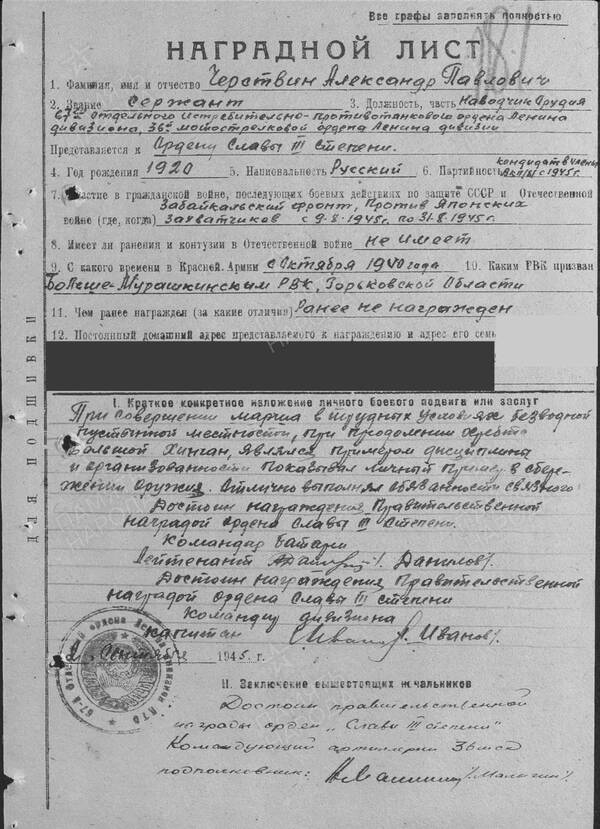 Все графы заполнять полностью
181
НАГРАДНОЙ ЛИСТ
1. Фамилия, имя и отчество Черствин Александр Павлович
2. Звание Сержант 3. Должность, часть Наводчик Орудия
67го Отдельного истребительно-противотанкового ордена Ленина
дивизиона, 36й мотострелковой ордена Ленина дивизии
Представляется к Ордену Славы III Степени.
4. Год рождения 1920 5. Национальность Русский 6. Партийность кандидат в члены
ВКП(б) с 1945г.
7. Участие в гражданской войне, последующих боевых действиях по защите СССР и Отечественной
Забайкальский фронт, Против Японских
войне (где, когда) Захватчиков с 9-8-1945г. по 31-8-1945г.
8. Имеет ли ранения и контузии в Отечественной войне не имеет
9. С какого времени в Красной Армии с Октября 1940 года 10. Каким РВК призван
Больше-Мурашкинским РВК, Горьковской Области
11. Чем ранее награжден (за какие отличия) Ранее не награжден
12. Постоянный домашний адрес представляемого к награждению и адрес его семьи
I. Краткое конкретное изложение личного боевого подвига или заслуг
При совершении марша в трудных условиях безводной
пустынной местности, при продолении хребта
Большой Хинган, являлся примером дисциплины
и организованности показывал личный пример в сбере-
жении оружия. Отлично выполнял обязанности связного
Достоин награждения Правительственной
наградой ордена Славы III Степени.
Командир батареи
Лейтенант /Данилов/.
Достоин награждения Правительственной
наградой ордена Славы III степени
Командир дивизиона
капитан /Иванов/.
2 Сентября 1945 г.
II. Заключение вышестоящих начальников
Достоин правительственной
награды орден „Славы III степени"
Командующий артиллерии 36 мсд
подполковник: /Малыгин/
ДЛЯ ПОДШИВКИ